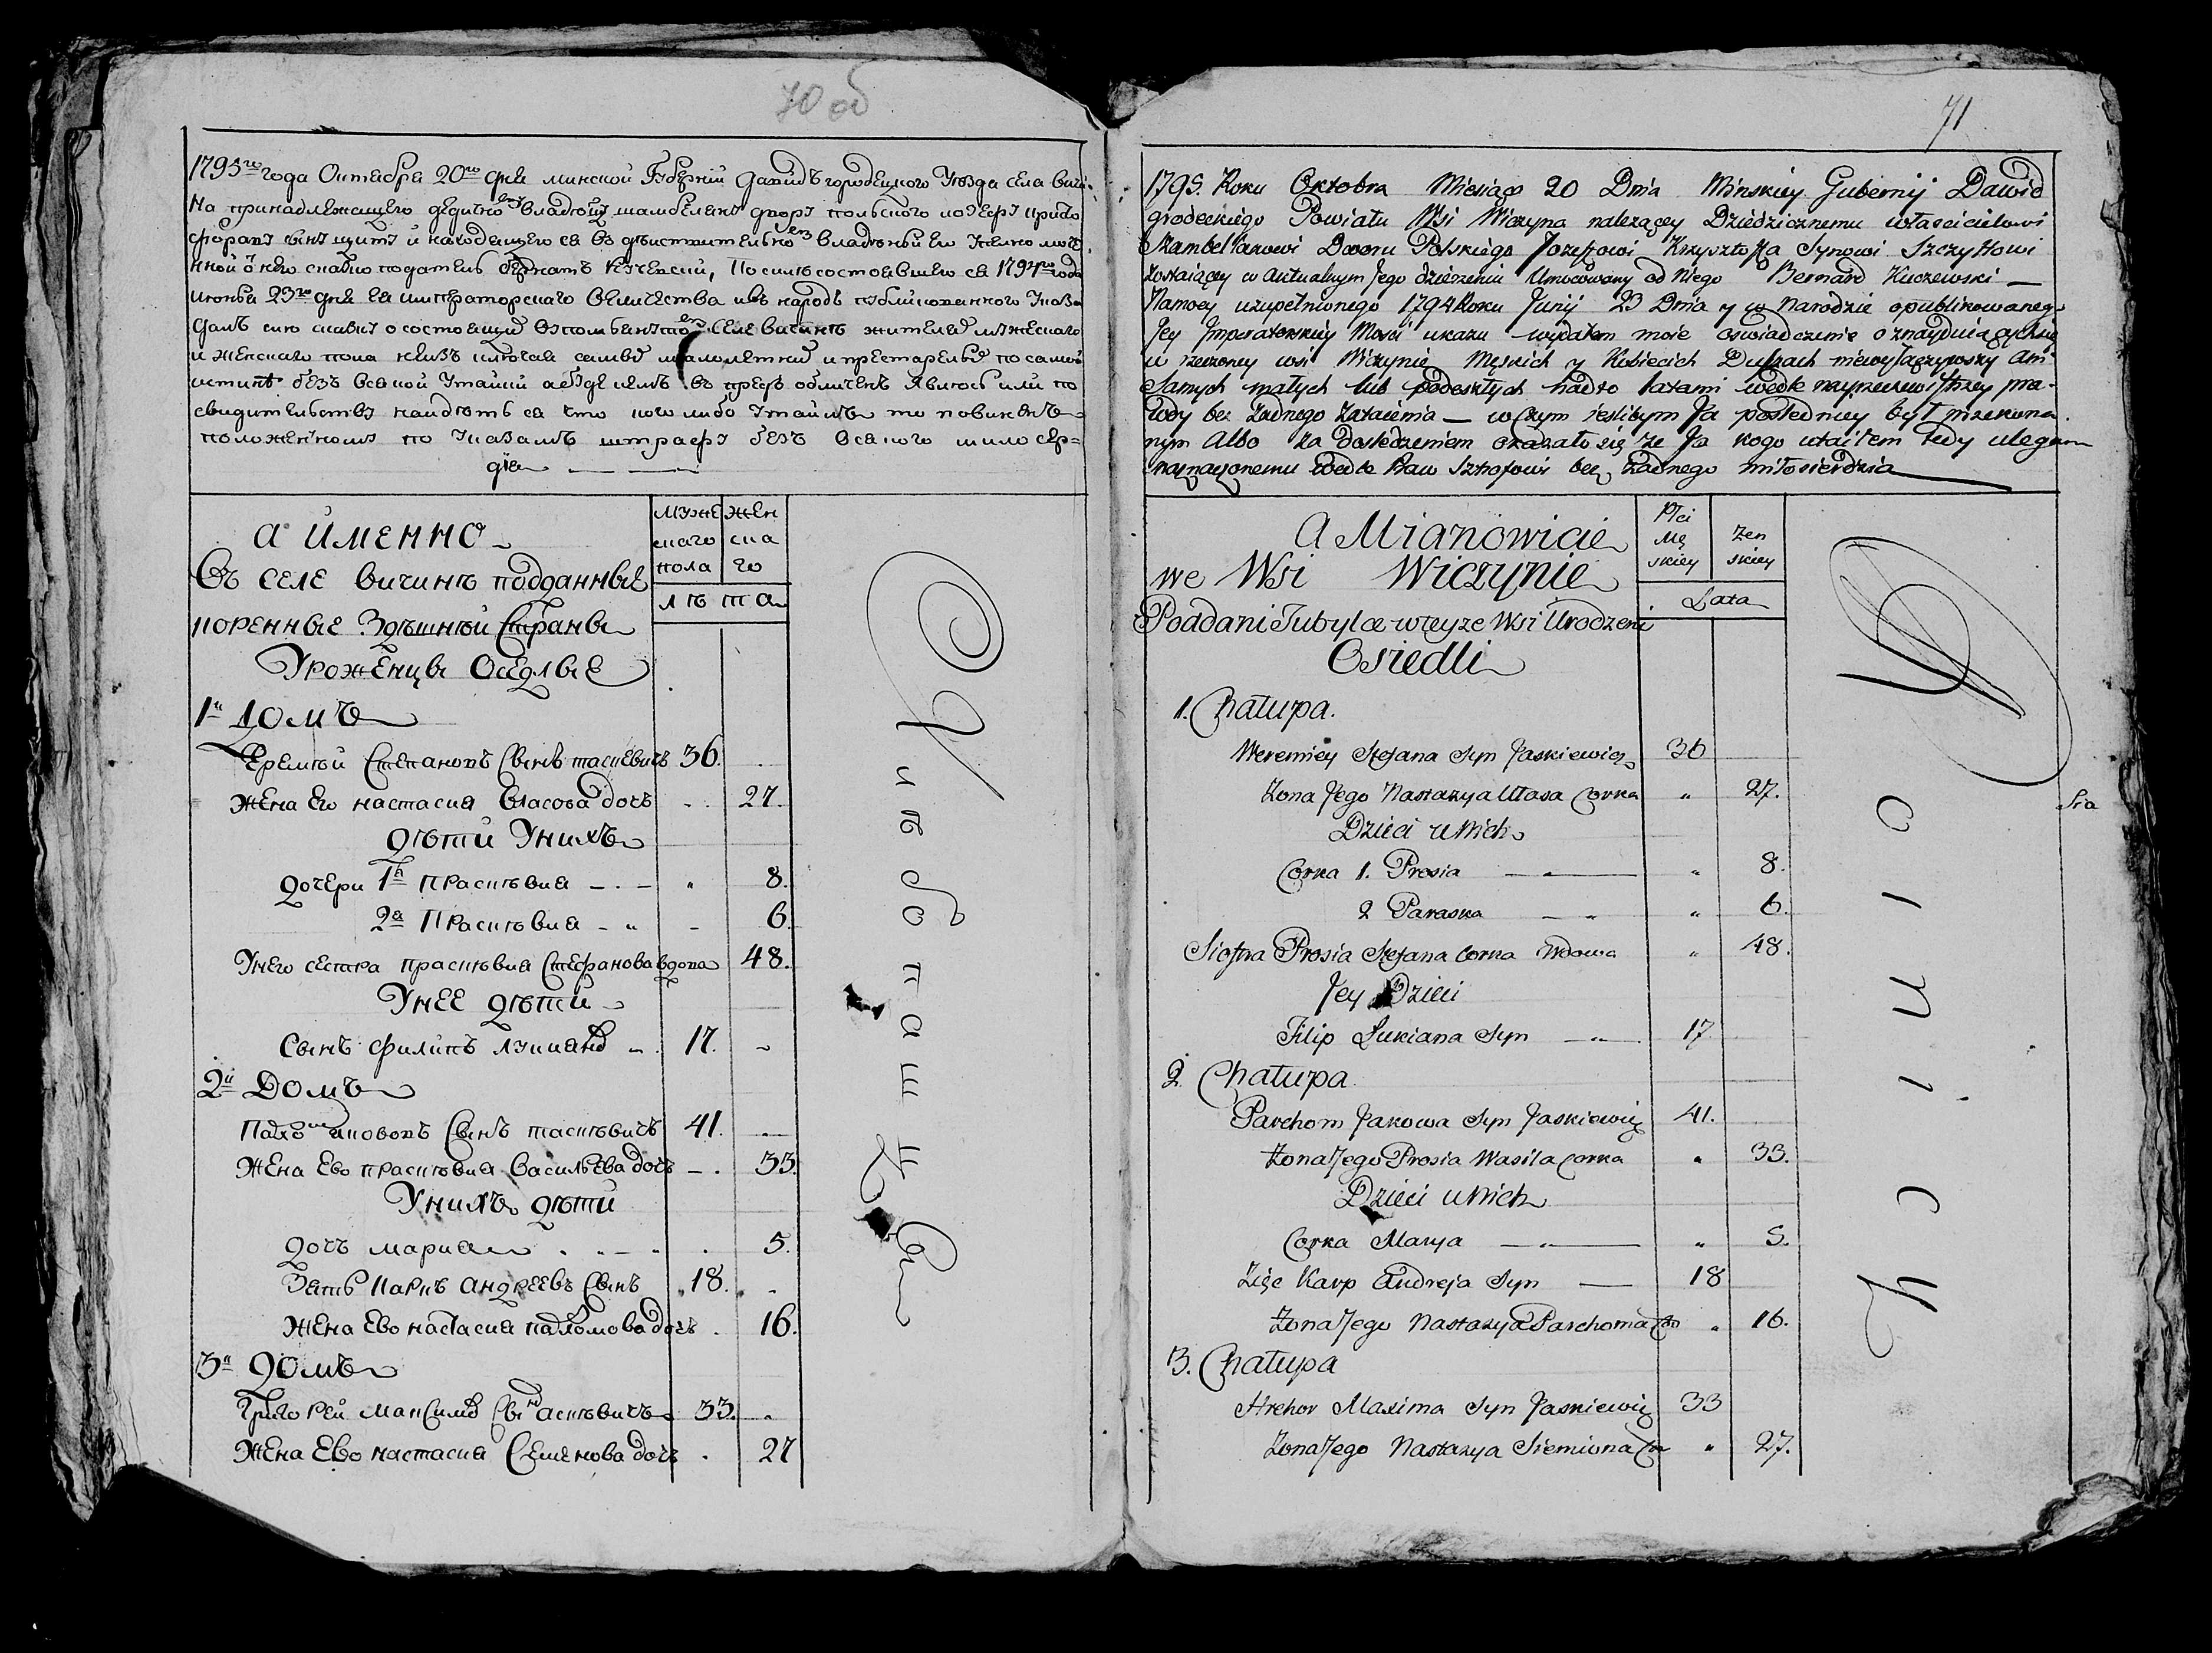 70 об
1795го года Октября 20го дня минской Губернии давидъ городецкого Уезда села вичи-
на принадлежащего дедично владеющу шамбеляну двору польского иозефу
сыну щиту и находящего ся въ действительном ево владении
1794го года
июня 23го дня ея императорского величества и въ народъ публикованного указа
селе вичинъ жителяхъ мужескаго
и женскаго пола
истине безъ всякой утайки
свидительству найдетъ ся что кого либо утаилъ то повиненъ
положенному по указамъ штрафу безъ всякого милосер=
дия
а именно
въ селе вичинъ подданные
коренные здѣшнѣй Страны
Уроженцы Оседлые
муже скаго пола
жен ска го
лѣта
1й домъ
Еремѣй Степановъ Сынъ таскевичъ 36.
жена Его настасия власова дочь 27.
дѣти Унихъ
дочери 1я праскѣвия 8.
2я Праскѣвия 6.
Унего сестра праскѣвия Стефанова вдова 48.
Унее дѣти
Сынъ филипъ лукиянъ 17.
2й Домъ
Пахом яковов Сынъ таскѣвичъ 41.
Жена Ево праскѣвия васильева дочь 33.
Унихъ дѣти
дочь мария 5.
Зять Карпъ андреевъ Сынъ 18.
Жена Ево настасия пахомова дочь 16.
3й домъ
Григорей максимъ Сын таскѣвичъ 33.
Жена Ево настасия Семенова дочь 27
71
1795. Roku Oktobra Miesiąca 20 Dnia Minskiey Gubernij Dawid
grodeckiego Powiatu Wsi Wiczyna nalezącey Dziedzicznemu własciciełowi
Szambellanowi Dworu Polskiego Jozeffowi Krzysztoffa Synowi Szczyttowi
zostaiącey w aktualnym Jego dzierzeniu Umocowany od Niego Bernard Kuczewski —
Namocy uzupełnionego 1794 Roku Junij 23 Dnia y w Narodzie opublikowanego
Jey Imperatorskiey Mosci ukazu wydałem moie oswiadczenie o znayduiących się
w rzeczoney wsi Wiczynie Męskich y Kobiecich Duszach niewyłączywszy ani
samych małych lub podeszłych nadto latami wedle nayrzeczewistszey pra-
wdy bez żadnego zataienia — w czym ieslibym Ja posledniey był przekona-
nym Albo za dosledzeniem okazało się że Ja kogo utaiłem tedy ulegam
naznaczonemu wedle Praw sztrofowi bez żadnego miłosierdzia
A Mianowicie
we Wsi Wiczynie
Poddani Tubylce w teyze Wsi Urodzeni
Osiedli
Płci Mę skiey
żen skiey
Lata
1. Chałupa.
Weremiey Stefana Syn Jaskiewicz 36
Zona Jego Nastazya Ułasa Corka 27.
Dzieci u Nich
Corka 1. Prosia 8.
2 Paraska 6.
Siostra Prosia Stefana Corka Wdowa 48.
Jey Dzieci
Filip Łukiana Syn 17
2. Chałupa
Parchom Jakowa Syn Jaskiewicz 41.
Zona Jego Prosia Wasila Corka 33.
Dzieci u Nich
Corka Marya 5.
Zięc Karp Andreja Syn 18
Zona Jego Nastazya Parchoma Cor 16.
3. Chałupa
Hrehor Maxima Syn Jaskiewicz 33
Zona Jego Nastazya Siemiona Cor 27.